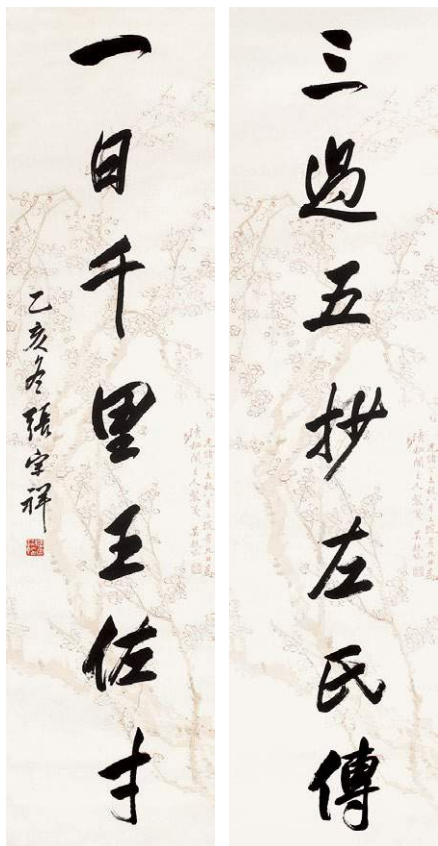 三過五抄左氏傳
一日千里王佐才
乙亥冬張宗祥